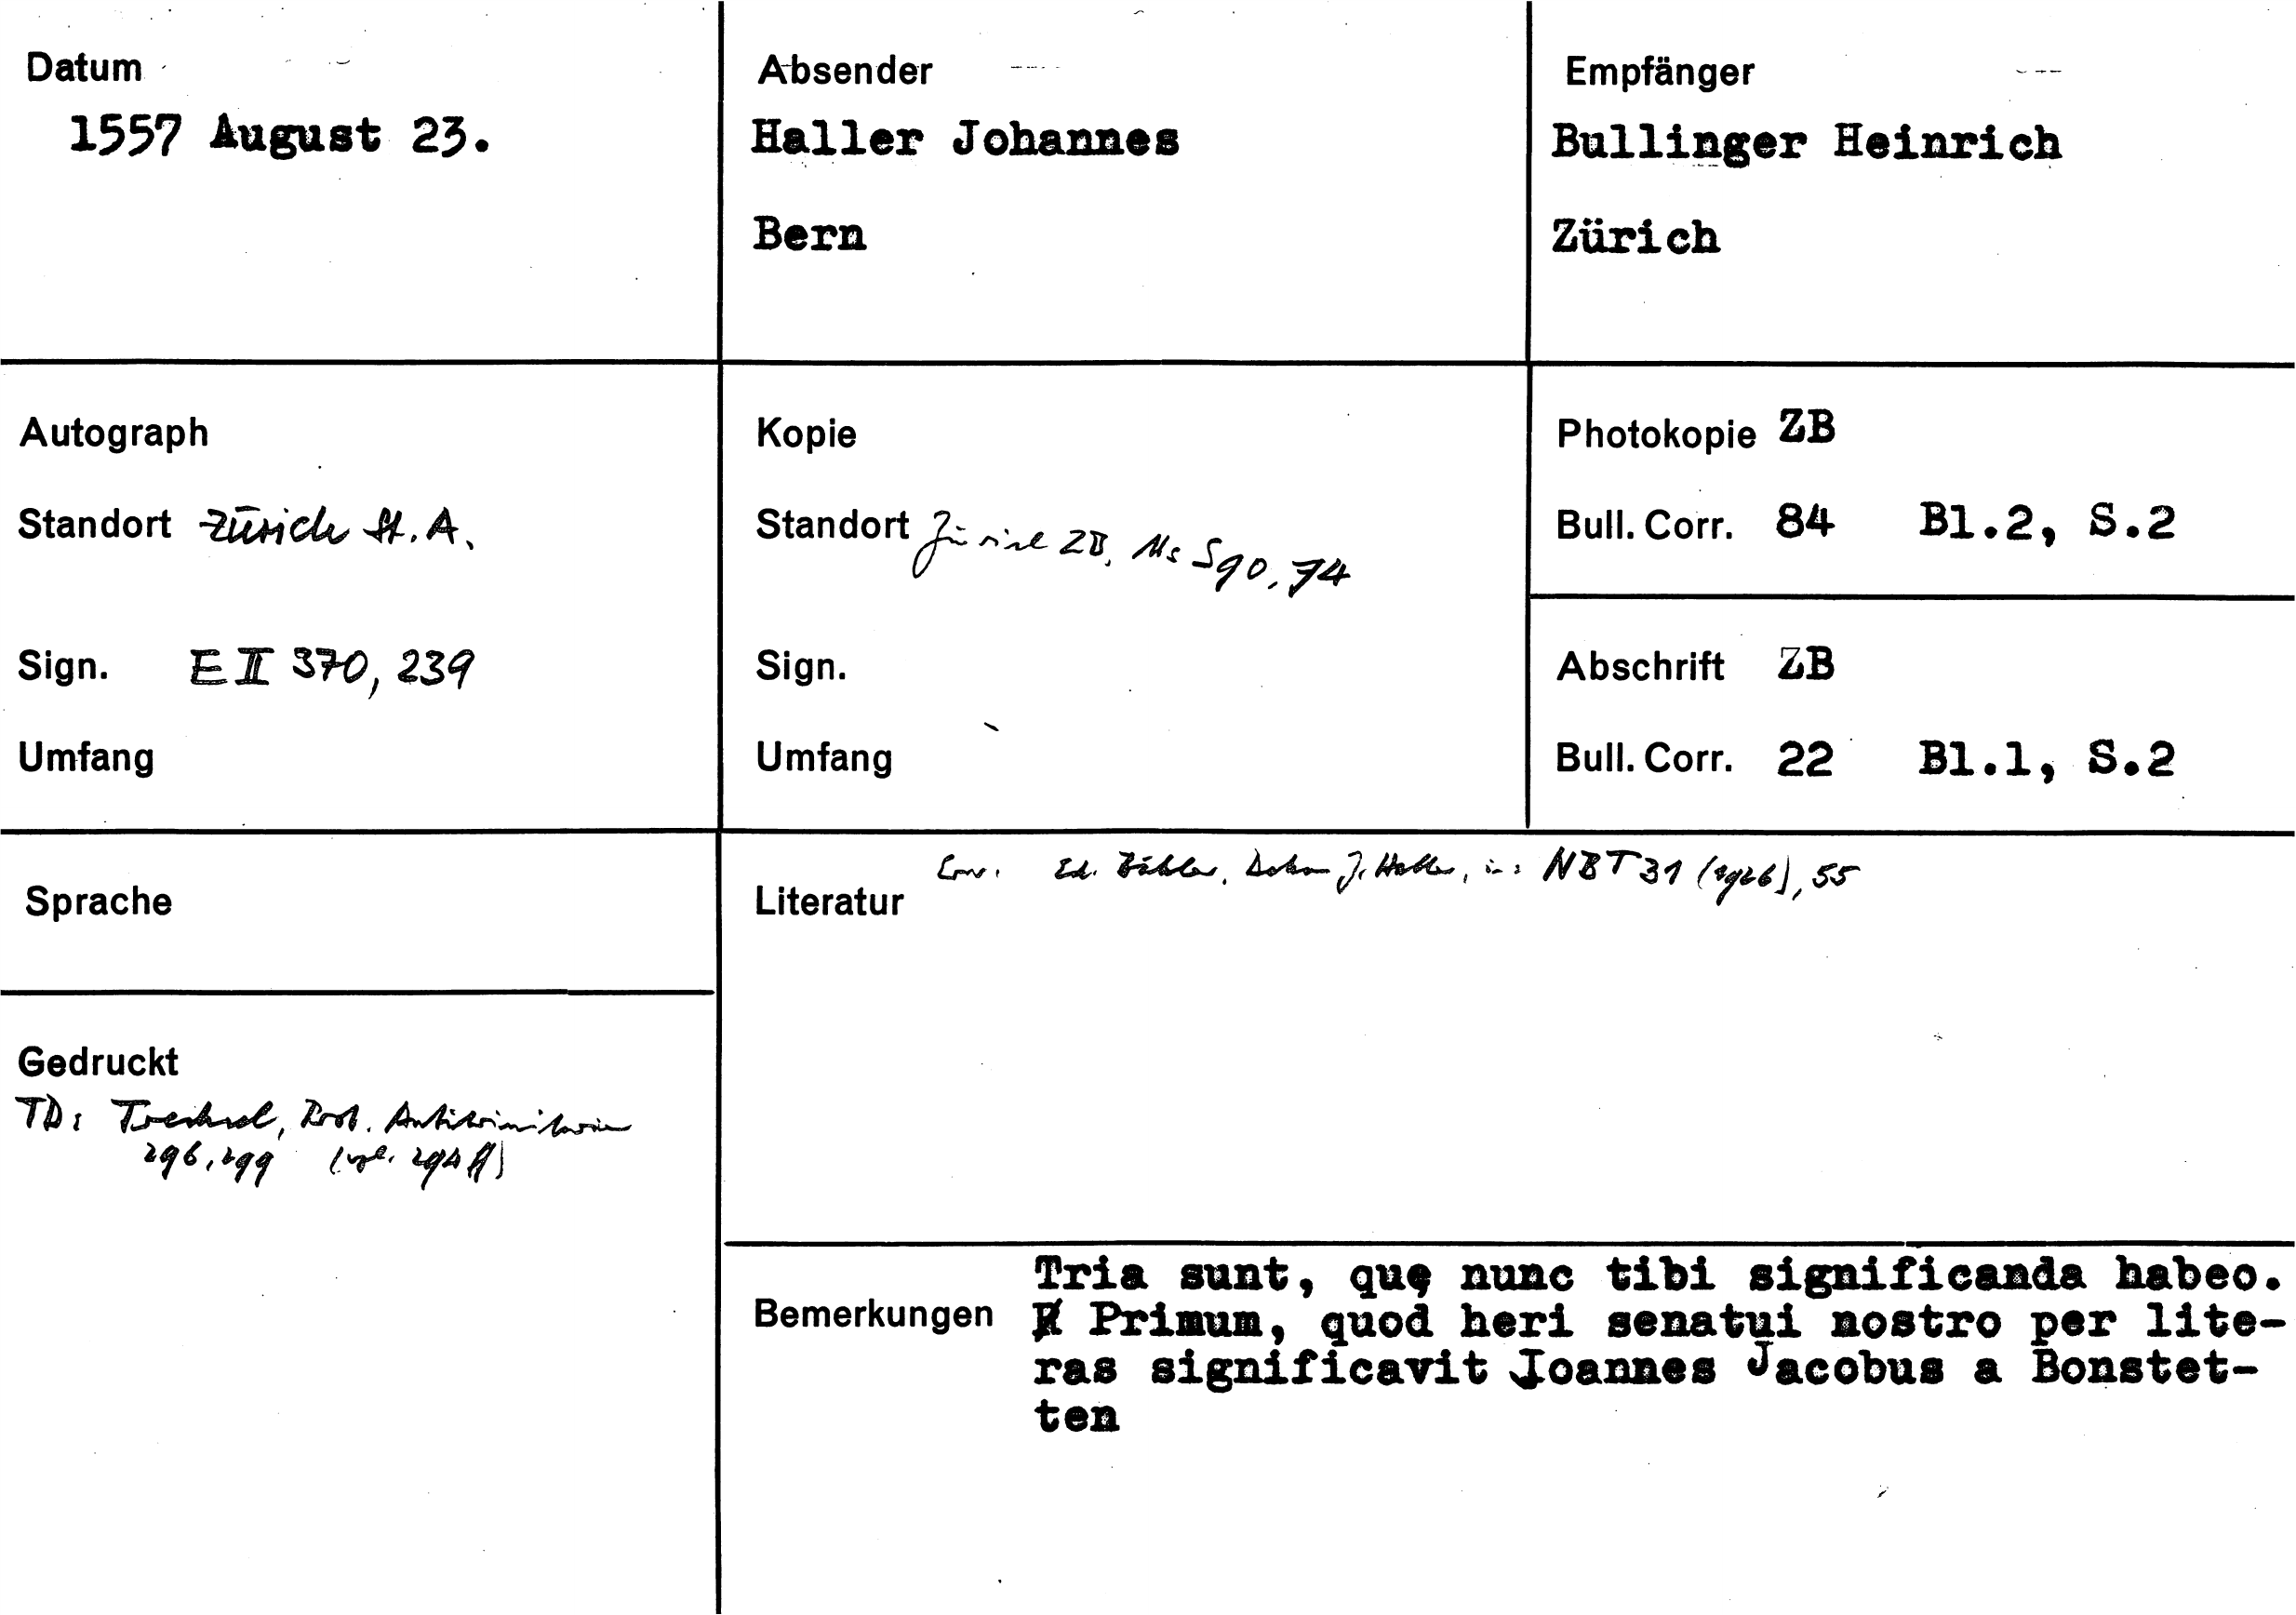 Datum
1557 August 23.
Absender
Haller Johannes
Bern
Empfänger
Bullinger Heinrich
Zürich
Autograph
Standort Zürich St. A.
Sign. E II 370, 239
Umfang
Kopie
Standort Zürich ZB, Ms S 90, 74
Sign.
Umfang
Photokopie ZB
Bull. Corr. 84 Bl.2, S.2
Abschrift ZB
Bull. Corr. 22 Bl.1, S.2
Sprache
Gedruckt
TD: Trechsel, Prot. Antitrinitarier
296, 299 (vgl. 294 ff)
Literatur
Erw. Ed. Bähler, Dekan J. Haller, in: NBT 31 (1926), 55
Bemerkungen
Tria sunt, quę nunc tibi significanda habeo.
Primum, quod heri senatui nostro per lite-
ras significavit Joannes Jacobus a Bonstet-
ten